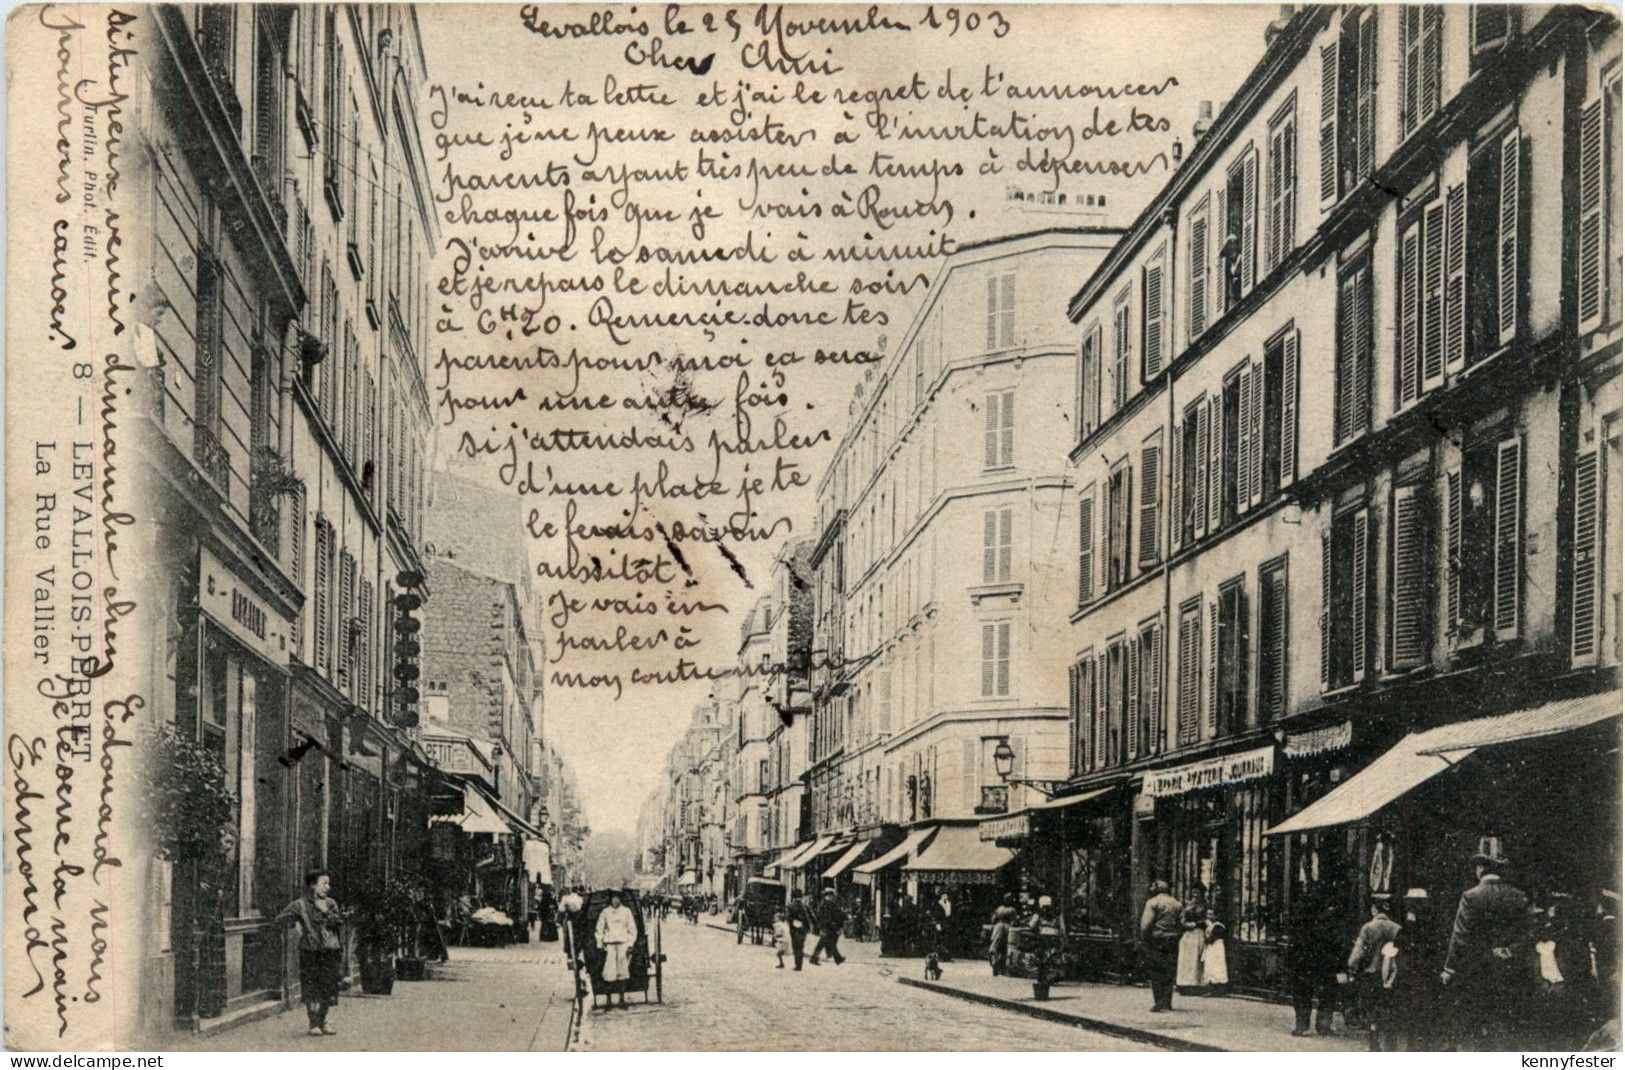 Levallois le 25 Novembre 1903
Cher Ami
J'ai reçu ta lettre et j'ai le regret de t'annoncer
que je ne peux assister à l'invitation de tes
parents ayant très peu de temps à dépenser
chaque fois que je vais à Rouen.
J'arrive le samedi à minuit
et je repars le dimanche soir
à 6H20. Remercie donc tes
parents pour moi ça sera
pour une autre fois.
si j'attendais parler
d'une place je te
le ferais savoir
aussitôt.
Je vais en
parler à
mon contre-maitre
si tu peux venir dimanche chez Edouard nous
pourrons causer. Je te serre la main
Edmond
L. Turlin, Phot. Édit.
8 — LEVALLOIS-PERRET
La Rue Vallier
PETIT
JOURNAUX
kennyfester